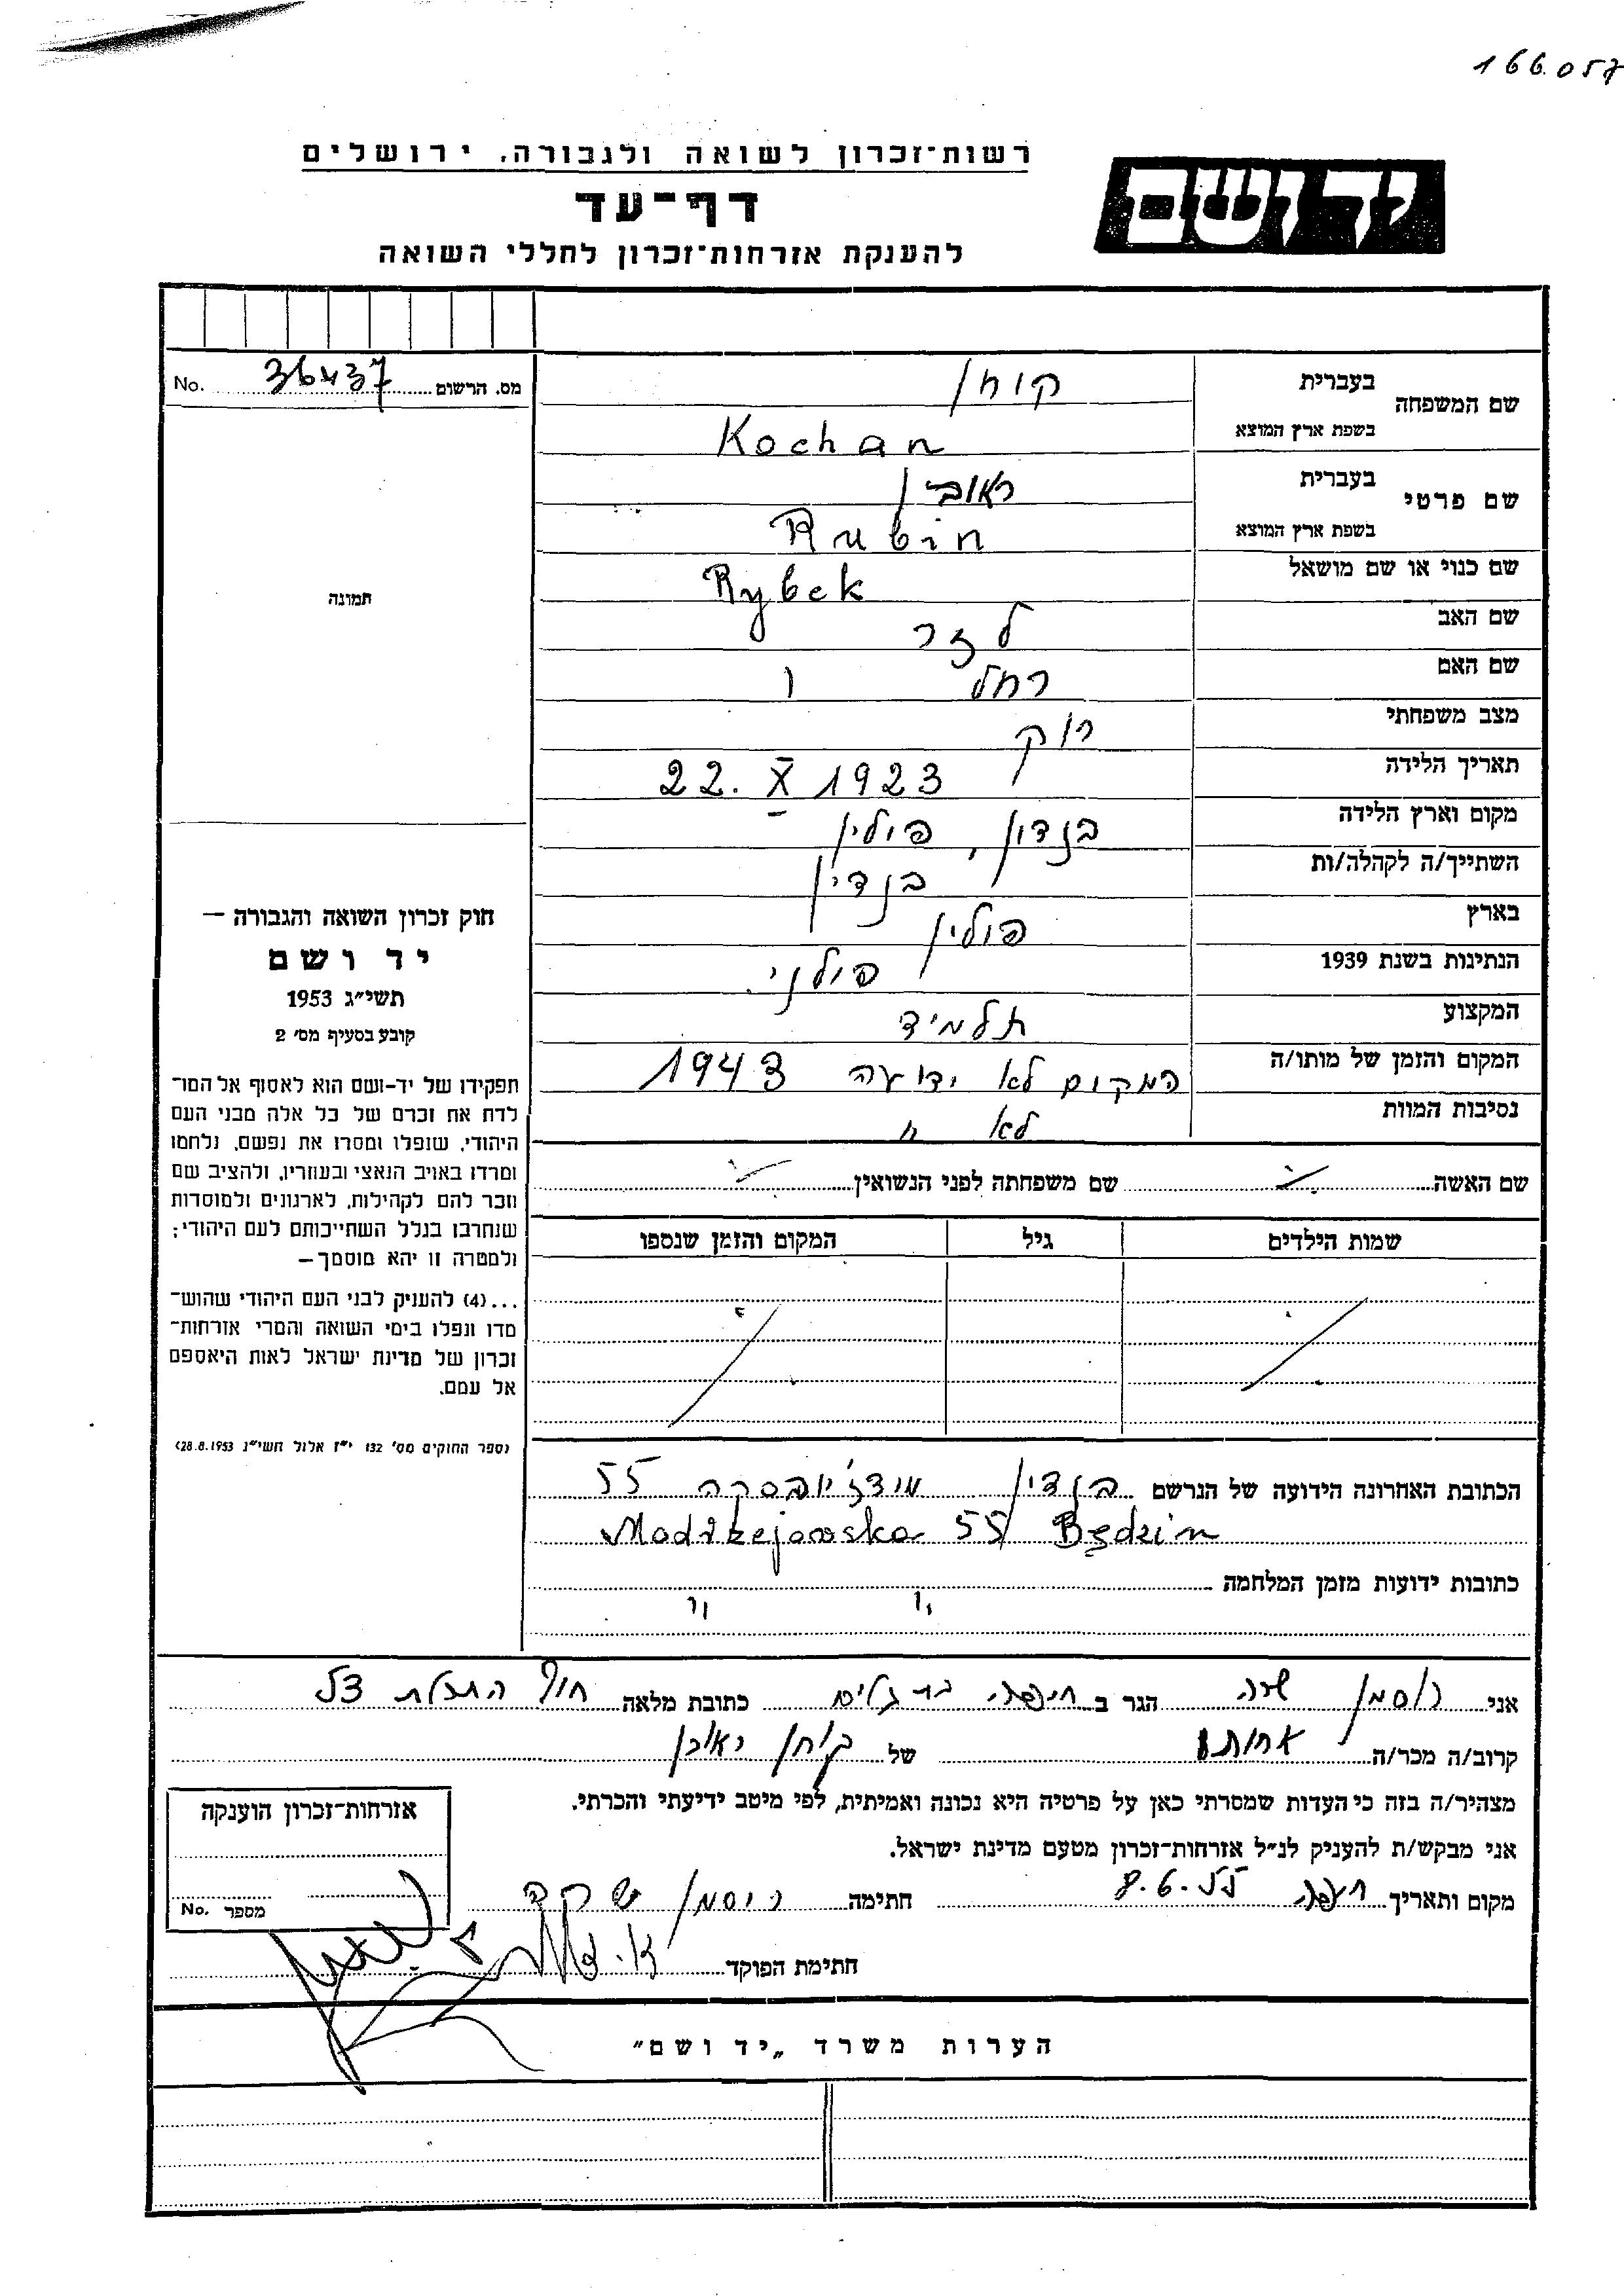 166.057
רשות־זכרון לשואה ולגבורה, ירושלים
יד ושם
דף־עד
להענקת אזרחות־זכרון לחללי השואה
No. 36437 מס. הרשום
שם המשפחה בעברית קוחן
בשפת ארץ המוצא Kochan
שם פרטי בעברית ראובן
בשפת ארץ המוצא Rubin
שם כנוי או שם מושאל Rybek
שם האב לזר
שם האם רחל
מצב משפחתי רוק
תאריך הלידה 22. X 1923
מקום וארץ הלידה בנדין, פולין
השתייך/ה לקהלה/ות בנדין
בארץ פולין
הנתינות בשנת 1939 פולני.
המקצוע תלמיד
המקום והזמן של מותו/ה המקום לא ידועה 1943
נסיבות המוות לא "
תמונה
חוק זכרון השואה והגבורה —
יד ושם
תשי״ג 1953
קובע בסעיף מס׳ 2
תפקידו של יד-ושם הוא לאסוף אל המו־
לדת את זכרם של כל אלה מבני העם
היהודי, שנפלו ומסרו את נפשם, נלחמו
ומרדו באויב הנאצי ובעוזריו, ולהציב שם
וזכר להם לקהילות, לארגונים ולמוסדות
שנחרבו בגלל השתייכותם לעם היהודי;
ולמטרה זו יהא מוסמך—
...(4) להעניק לבני העם היהודי שהוש־
מדו ונפלו בימי השואה והמרי אזרחות־
זכרון של מדינת ישראל לאות היאספם
אל עמם.
(ספר החוקים מס׳ 132 י״ז אלול תשי״ג 28.8.1953)
שם האשה שם משפחתה לפני הנשואין
שמות הילדים גיל המקום והזמן שנספו
הכתובת האחרונה הידועה של הנרשם בנדין מודז'יובסקה 55
Modrzejowska 55 Będzin
כתובות ידועות מזמן המלחמה
" "
אני רוסמן שרה הגר ב חיפה בת גלים כתובת מלאה חוף התכלת
קרוב/ה מכר/ה אחותו של קוחן ראובן
מצהיר/ה בזה כי העדות שמסרתי כאן על פרטיה היא נכונה ואמיתית, לפי מיטב ידיעתי והכרתי.
אני מבקש/ת להעניק לנ״ל אזרחות־זכרון מטעם מדינת ישראל.
מקום ותאריך חיפה 8.6.55 חתימה רוסמן
חתימת הפוקד
אזרחות־זכרון הוענקה
No. מספר
הערות משרד „יד ושם״